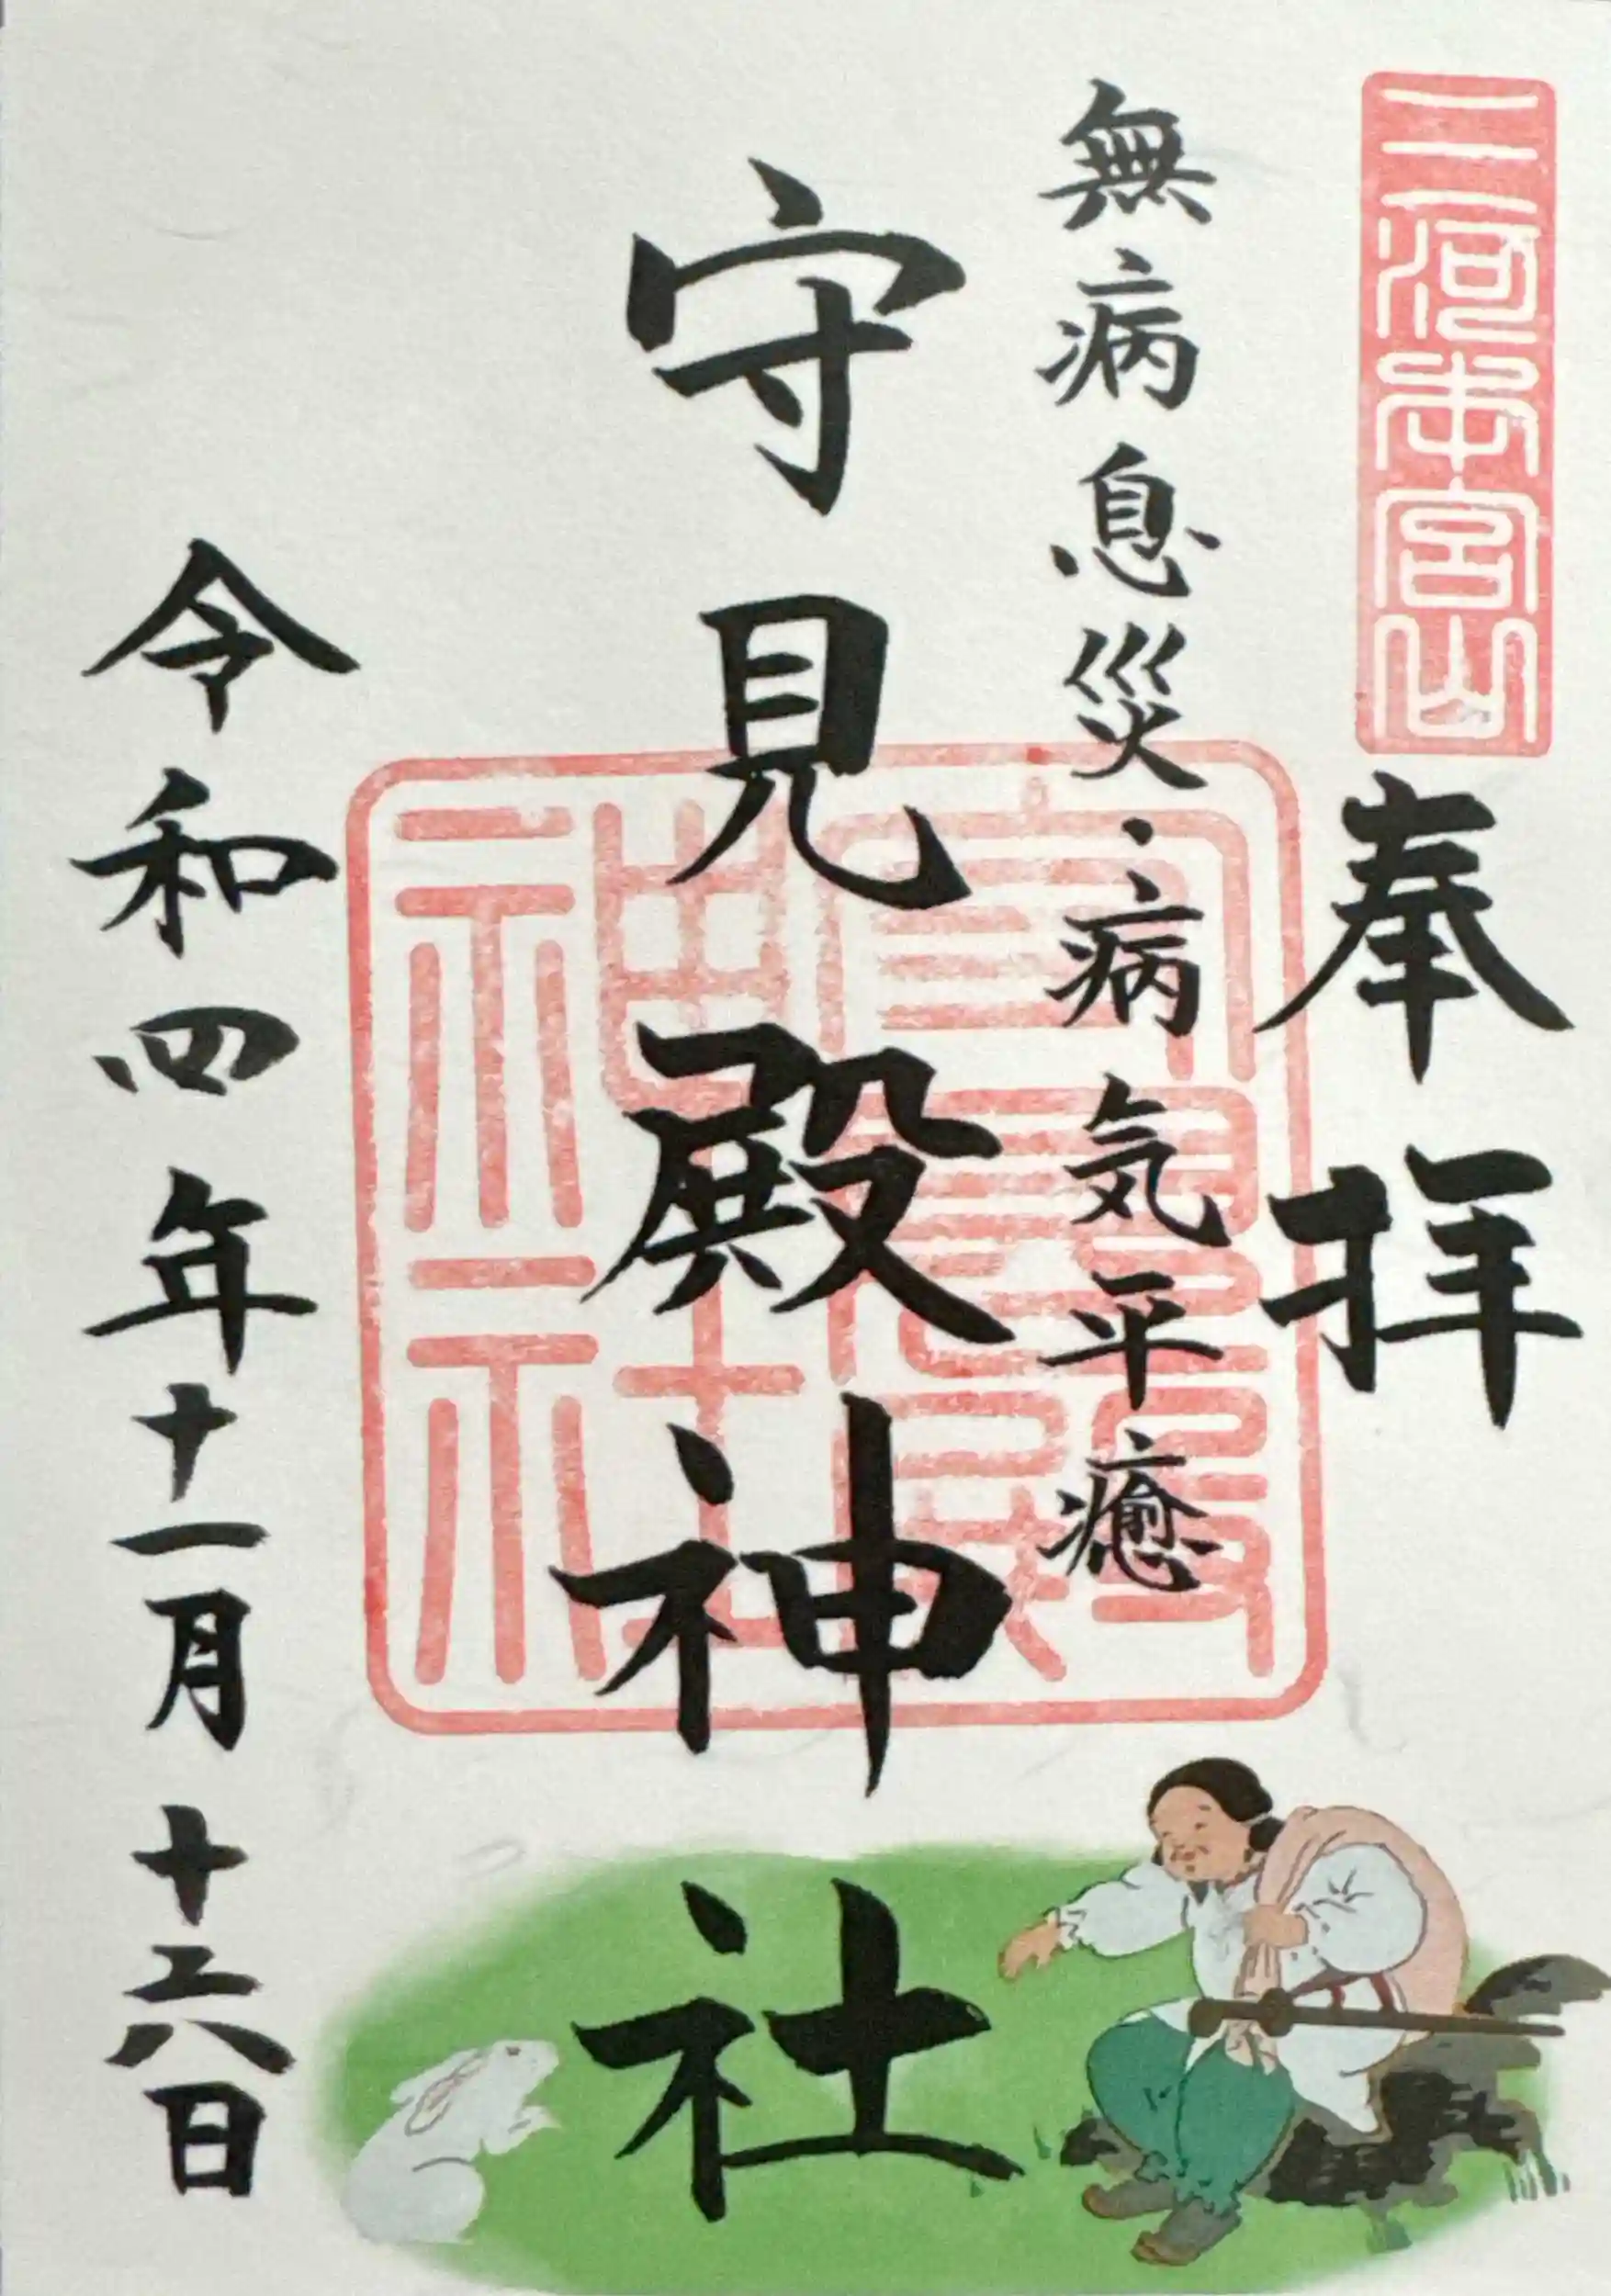 三河本宮山
奉拝
無病息災、病気平癒
守見殿神社
守見殿神社
令和四年十一月十六日